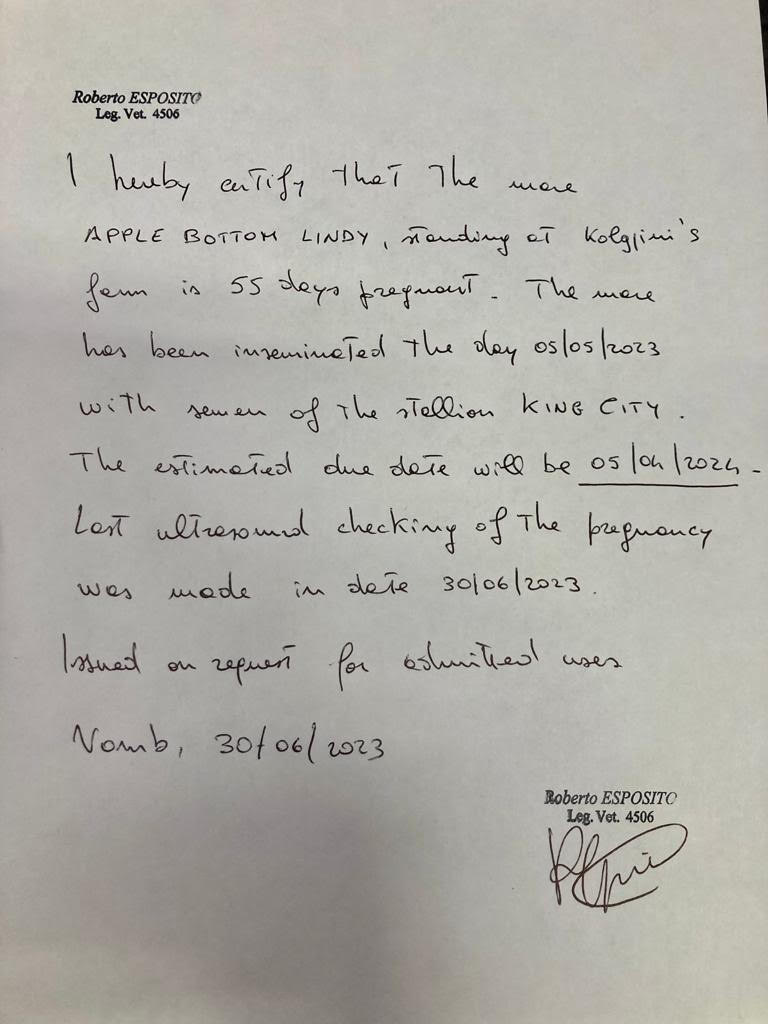 Roberto ESPOSITO
Leg. Vet. 4506
I hereby certify that the mare
APPLE BOTTOM LINDY, standing at Kolgjini's
farm is 55 days pregnant. The mare
has been inseminated the day 05/05/2023
with semen of the stallion KING CITY.
The estimated due date will be 05/04/2024.
Last ultrasound checking of the pregnancy
was made in date 30/06/2023.
Issued on request for admitted uses
Vomb, 30/06/2023
Roberto ESPOSITO
Leg. Vet. 4506